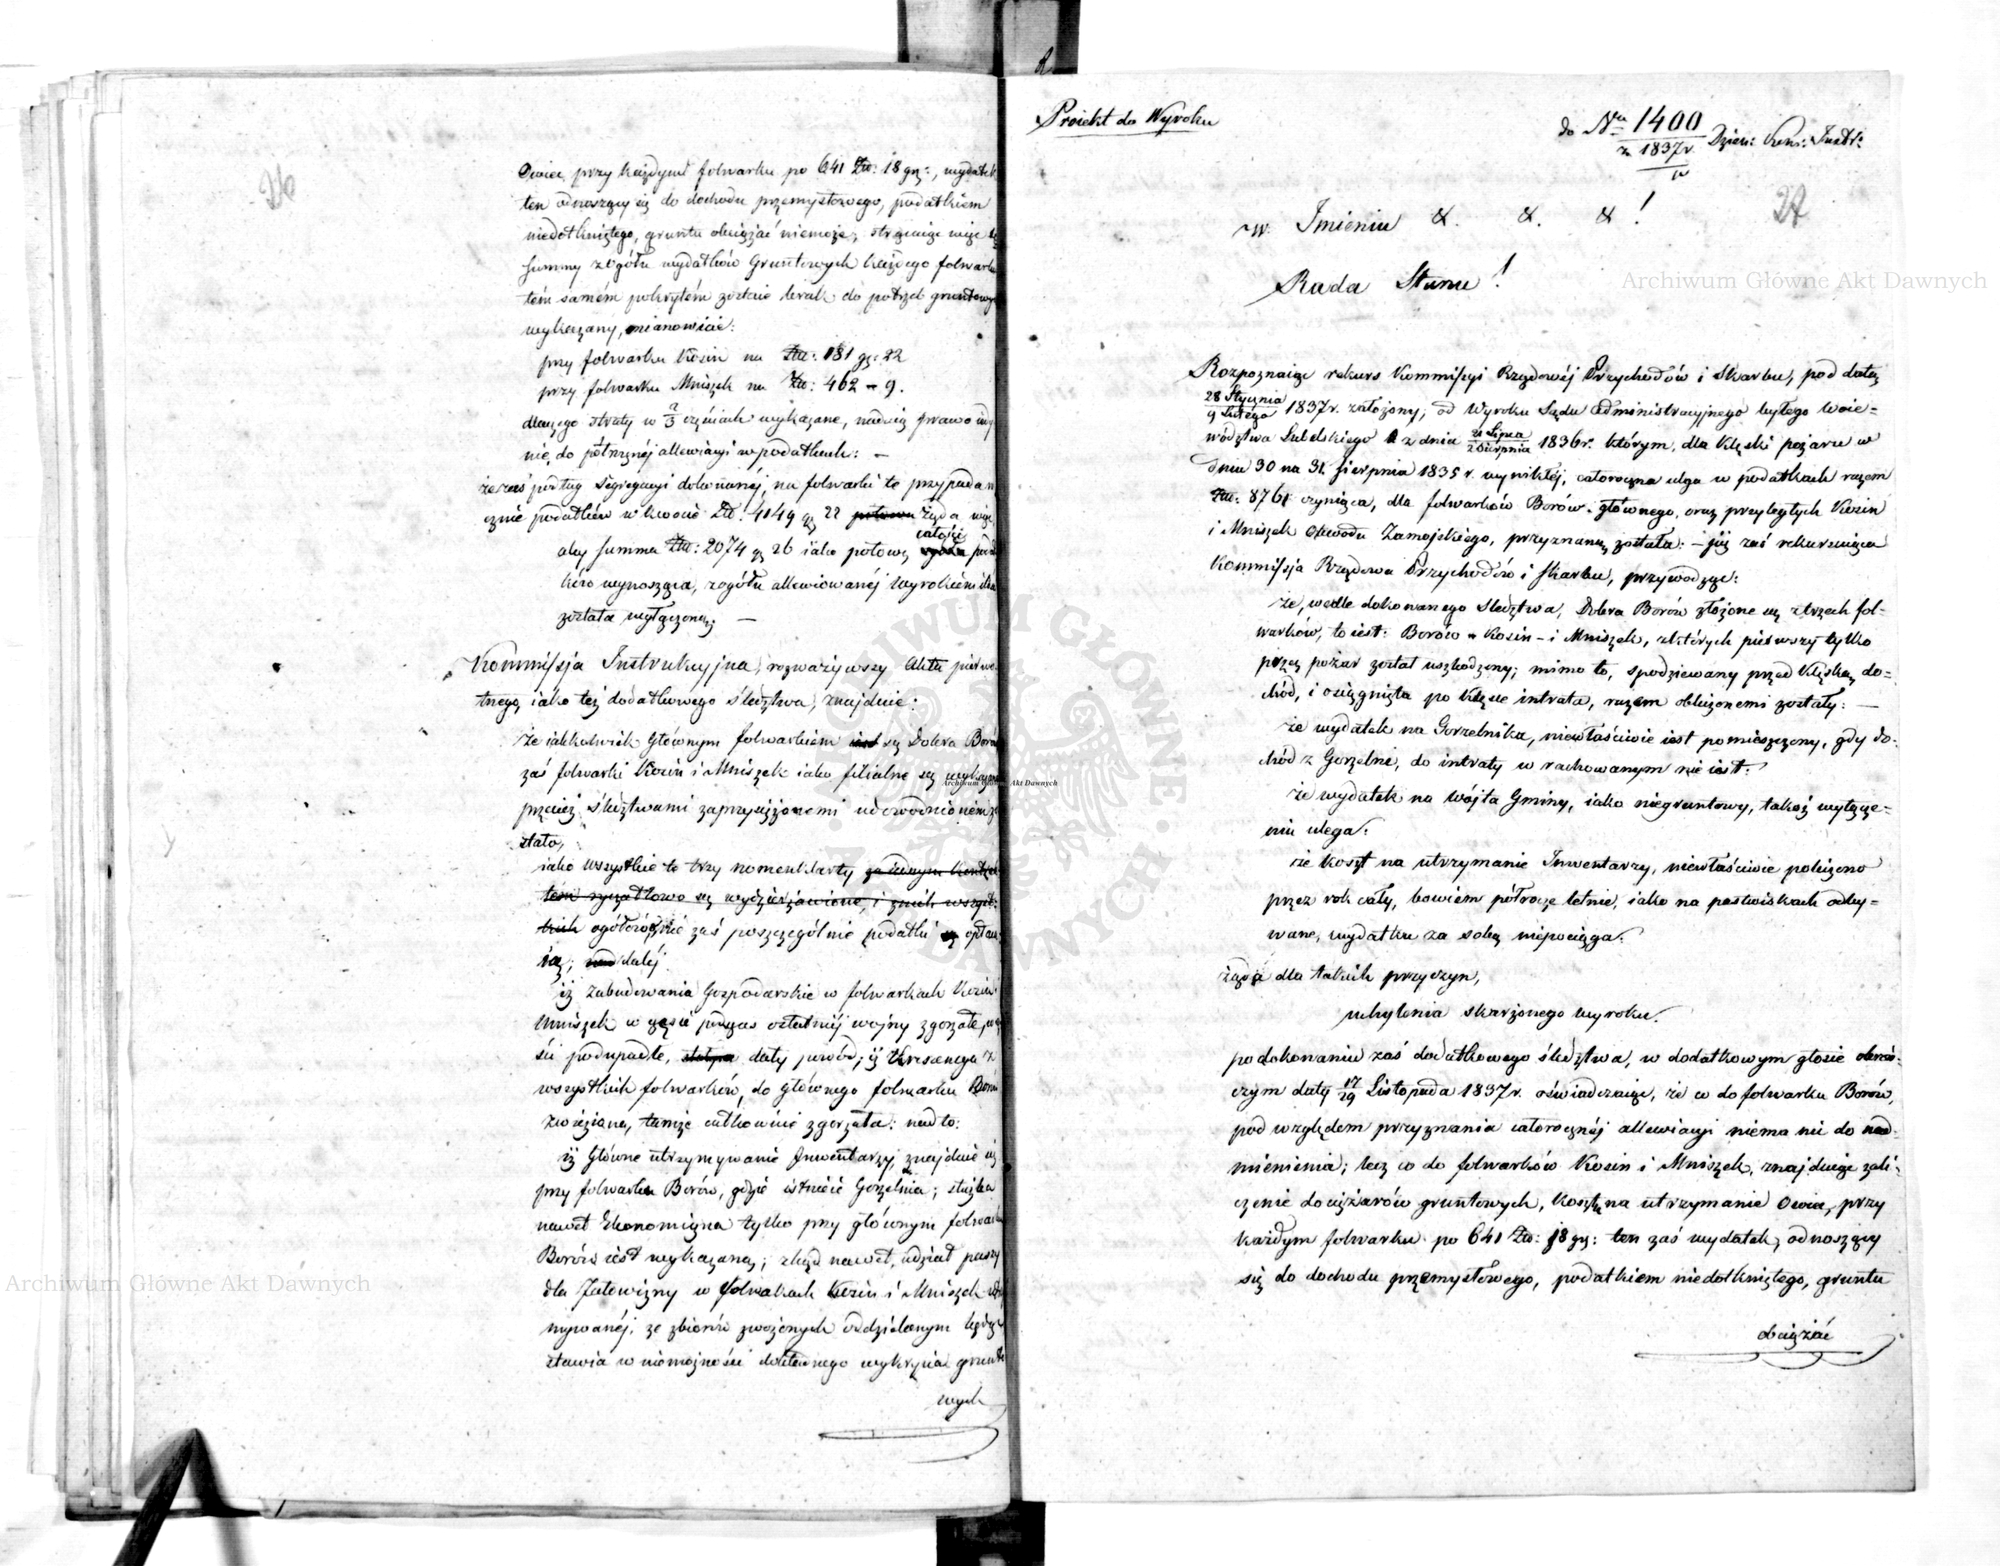 26
Owiec, przy każdym folwarku po 641 Złł: 18 gr:, wydatek
ten odnoszący się do dochodu przemysłowego, podatkiem
niedotkniętego, gruntu obciążać niemoże; strącając więc tę
summy z ogółu wydatków Gruntowych każdego folwarku
tém samém pokrytém zostaie brak do potrzeb gruntowych
wykazany, mianowicie:
przy folwarku Kosin na Złł: 181 gr: 22
przy folwarku Mniszek na Złł: 462 – 9.
dlaczego straty w 2/3 częściach wykazane, nadaią prawo
nie, do półrocznéj allewiacyi w podatkach: –
że zaś podług Segregacyi dokonanéj, na folwarki te przypada
cznie podatków w kwocie Złł: 4149 gr 22 połowa Żąda więc
całości
aby summa Złł: 2074 gr 26 iako połowę podat
ków wynosząca, z ogółu allewiowanéj Wyrokiem
została wyłączoną. –
Kommissja Instrukcyjna, rozważywszy Akta pierwo
tnego iako téż dodatkowego śledztwa, znajduie:
że iakkolwiek Głównym folwarkiem iest są Dobra Borów
zaś folwarki Kosin i Mniszek iako filialne są wykazane
przecież śledztwami zaprzysiężonemi udowodnioném zo
stało,
iako wszystkie te trzy nomenklatury za iednym kontrak
tem ryczałtowo są wydzierżawione, i z nich wszyst
kich ogółowo zaś poszczególnie podatki są opłaca
ią; nad daléj
iż Zabudowania Gospodarskie w folwarkach Kosin
Mniszek w części podczas ostatniéj wojny zgorzałe, w czę
ści podupadłe, dały powód, iż Krescencya z
wszystkich folwarków, do głównego folwarku Borów
zwieziona, tamże całkowicie zgorzała: nadto:
iż Główne utrzymywanie Inwentarzy, znajduie się
przy folwarku Borów, gdzie istnieie Gorzelnia; służba
nawet Ekonomiczna tylko przy głównym folwarku
Borów iest wykazaną; zkąd nawet, udział paszy
dla Jałowizny w folwarkach Kosin i Mniszek utrzy
mywanéj, ze zbiorów zwożonych oddzielonym będąc
stawia w niemożności dokładnego wykrycia grunto
wych
Proiekt do Wyroku
do Nru 1400 Dzien: Kom: Instr:
z 1837 r.
27
w Imieniu &. &. &!
Rada Stanu!
Rozpoznaiąc rekurs Kommissyi Rządowéj Przychodów i Skarbu, pod datą
28 Stycznia
9 Lutego 1837 r. założony, od Wyroku Sądu Administracyjnego byłego Woie=
wództwa Lubelskiego z dnia 21 Lipca
2 Sierpnia 1836 r. którym, dla klęski pożaru w
dniu 30 na 31 Sierpnia 1835 r. wynikłéj, całoroczna ulga w podatkach razem
Złł: 8761 czyniąca, dla folwarków Borów głównego, oraz przyległych Kosin
i Mniszek Obwodu Zamojskiego, przyznaną została: – gdy zaś rekursuiąca
Kommissja Rządowa Przychodów i Skarbu, przywodząc:
że, wedle dokonanego śledztwa, Dobra Borów złożone są z trzech fol-
warków, to iest: Borów – Kosin – i Mniszek, z których pierwszy tylko
przez pożar został uszkodzony; mimo to, spodziewany przed klęską do=
chód, i osiągnięta po klęsce intrata, razem obliczonemi zostały: –
że wydatek na Gorzelnika, niewłaściwie iest pomieszczony, gdy do-
chód z Gorzelni, do intraty w rachowanym nie iest:
że wydatek na Wójta Gminy, iako niegruntowy, takoż wyłącze=
niu ulega:
że koszt na utrzymanie Inwentarzy, niewłaściwie policzono
przez rok cały, bowiem półrocze letnie, iako na pastwiskach odby=
wane, wydatku za sobą niepociąga:
żąda dla takich przyczyn,
uchylenia skarżonego wyroku.
po dokonaniu zaś dodatkowego śledztwa, w dodatkowym głosie obroń-
czym daty 17/29 Listopada 1837 r. oświadczaiąc, że co do folwarku Borów,
pod względem przyznania całorocznéj allewiacyi niema nic do nad-
mienienia; lecz co do folwarków Kosin i Mniszek, znajduiąc zali-
czenie do ciężarów gruntowych, kosztu na utrzymanie Owiec, przy
każdym folwarku po 641 Złł: 18 gr: ten zaś wydatek, odnoszący
się do dochodu przemysłowego, podatkiem niedotkniętego, gruntu
obciążać
Archiwum Główne Akt Dawnych
Archiwum Główne Akt Dawnych
Archiwum Główne Akt Dawnych
ARCHIWUM GŁÓWNE AKT DAWNYCH